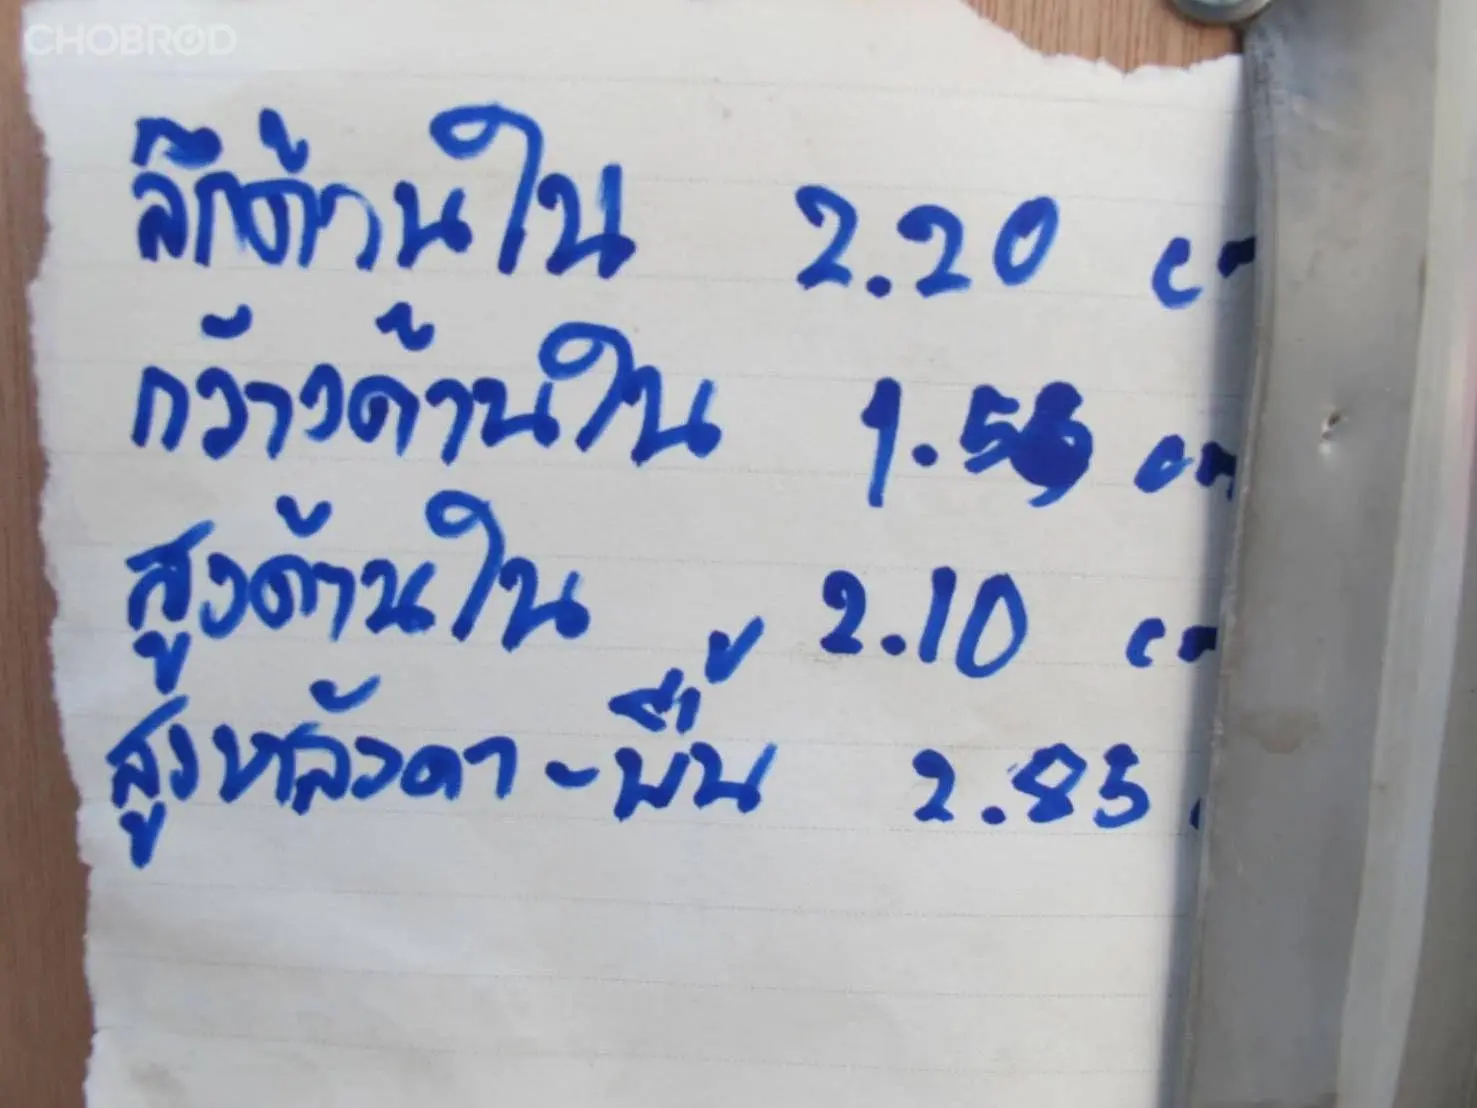 CHOBROD
ลึกด้านใน 2.20 cm
กว้างด้านใน 1.53 cm
สูงด้านใน 2.10 cm
สูงหลังคา - พื้น 2.83